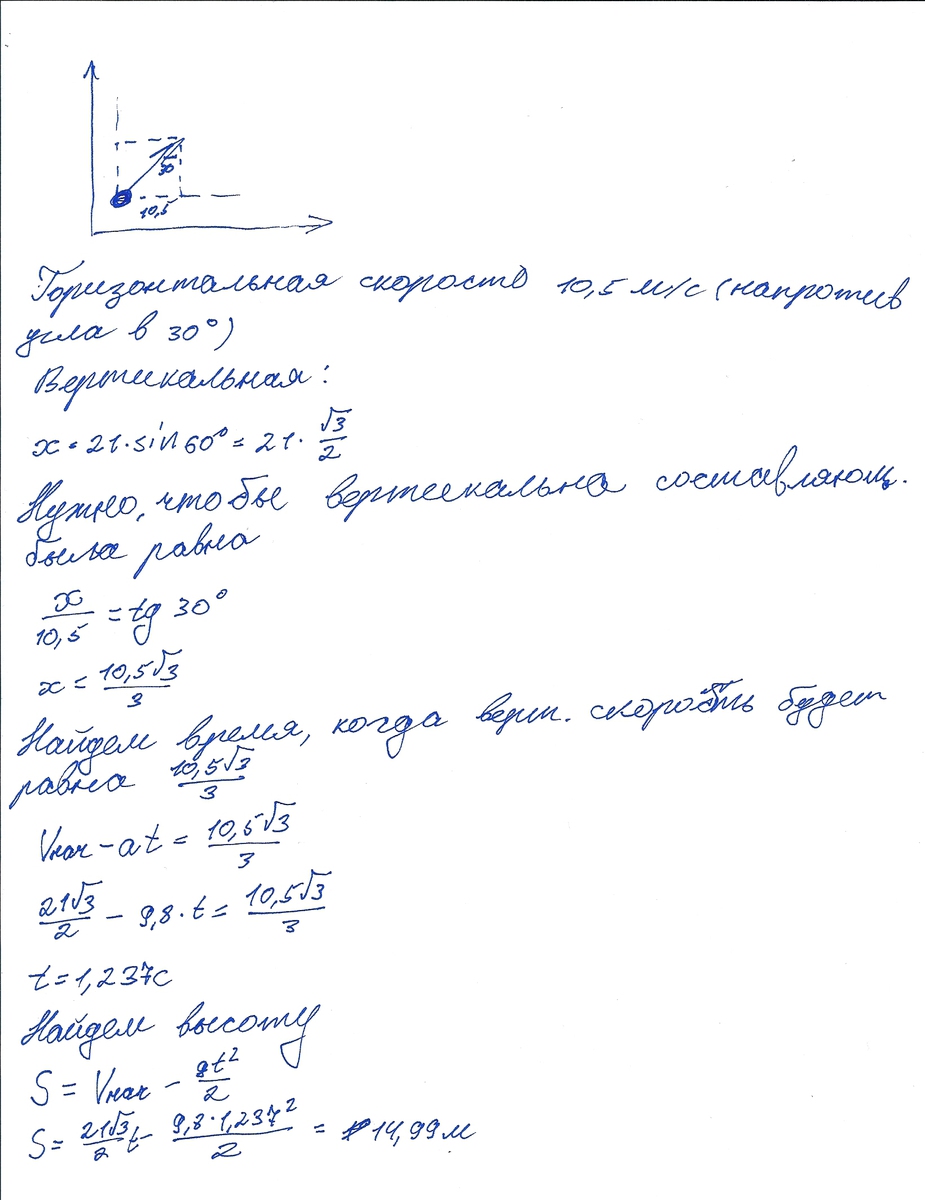 30
10,5
Горизонтальная скорость 10,5 м/с (напротив
угла в 30°)
Вертикальная:
x = 21·sin 60° = 21·√3/2
Нужно, чтобы вертикальна составляющ.
была равна
x/10,5 = tg 30°
x = 10,5√3/3
Найдем время, когда верт. скорость будет
равна 10,5√3/3
Vнач - at = 10,5√3/3
21√3/2 - 9,8·t = 10,5√3/3
t = 1,237с
Найдем высоту
S = Vнач - gt²/2
S = 21√3/2 t - 9,8·1,237²/2 = 14,99м